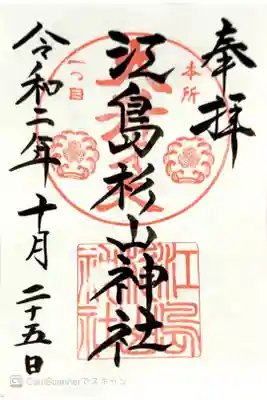 奉拝
本所
一つ目
江島杉山神社
江島杉山神社
令和二年十月二十五日
CamScannerでスキャン